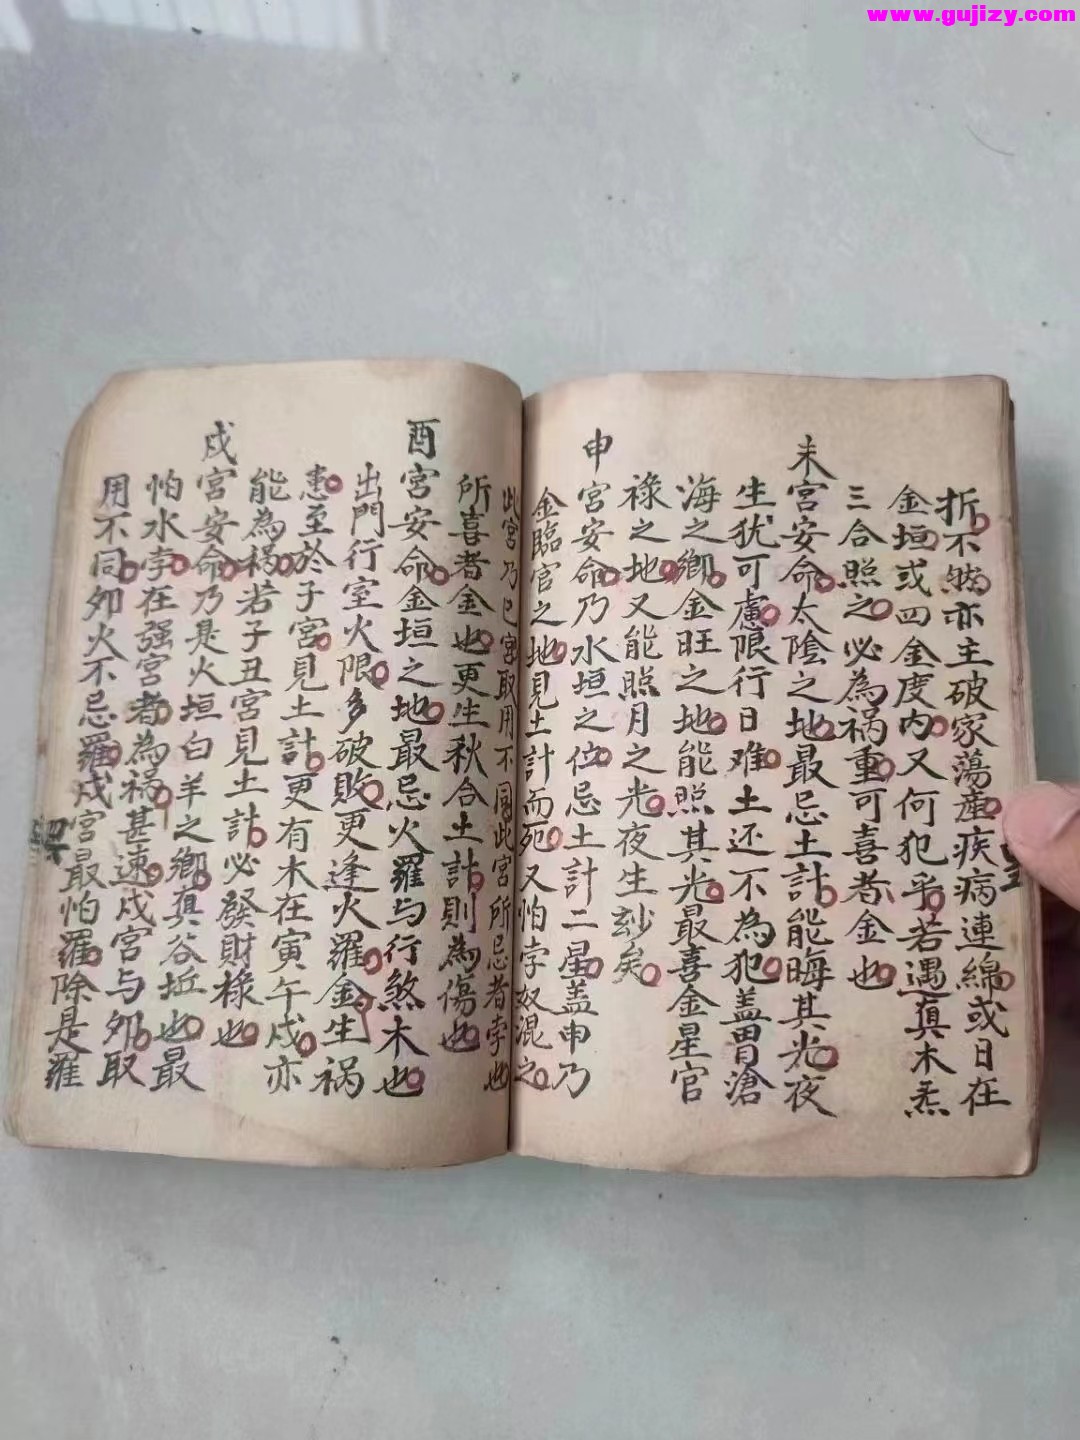 www.gujizy.com
折不然亦主破家蕩產疾病連綿或日在
金垣或四金度内又何犯乎若遇真木炁
三合照之必為祸重可喜者金也
未宮安命太陰之地最忌土計能晦其光夜
生犹可慮限行日难土还不為犯盖胃滄
海之鄉金旺之地能照其光最喜金星官
祿之地又能照月之光夜生玅矣
申宮安命乃水垣之位忌土計二星盖申乃
金臨官之地見土計而死又怕孛奴混之
此宮乃巳宮取用不同此宮所忌者孛也
所喜者金也更生秋合土計則為傷也
酉宮安命金垣之地最忌火羅与行煞木也
出門行室火限多破敗更逢火羅金生祸
患至於子宮見土計更有木在寅午戍亦
能為祸若子丑宮見土計必發財祿也
戍宮安命乃是火垣白羊之鄉真谷坵也最
怕水孛在强宮者為祸甚速戍宮与夘取
用不同夘火不忌羅戍宮最怕羅除是羅